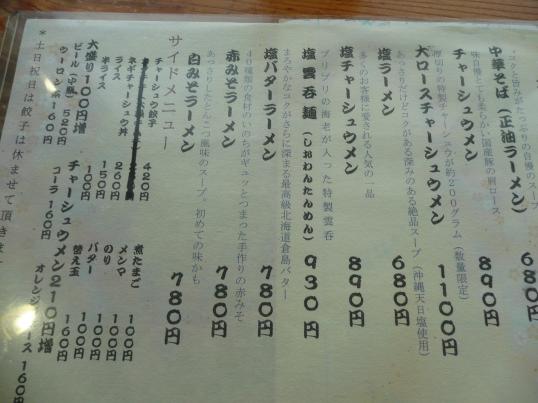 "コクと旨みがたっぷりの自慢のスープ
中華そば(正油ラーメン) 680円
味自慢とても柔らかい国産豚の肩ロース
チャーシュウメン 890円
厚切りの特製チャーシュウが約200グラム(数量限定)
大ロースチャーシュウメン 1100円
あっさりだけどコクがある深みのある絶品スープ(沖縄天日塩使用)
塩ラーメン 680円
多くのお客様に愛される人気の一品
塩チャーシュウメン 890円
プリプリの海老が入った特製雲呑
塩雲呑麺(しおわんたんめん) 930円
まろやかなコクがさらに深まる最高級北海道倉島バター
塩バターラーメン 780円
40種類の食材のいのちがギュッとつまった手作りの赤みそ
赤みそラーメン 780円
あっさりしたとんこつ風味のスープ。初めての味かも
白みそラーメン 780円
サイドメニュー
チャーシュウ餃子 420円
ネギチャーシュウ丼
ライス 260円
半ライス 150円
煮たまご 100円
メンマ 100円
のり 100円
バター 100円
替え玉 160円
大盛り100円増 チャーシュウメン210円増
ビール(中瓶) 520円 コーラ 160円 オレンジジュース 160円
ウーロン茶 160円
*土日祝日は餃子は休ませて頂きます